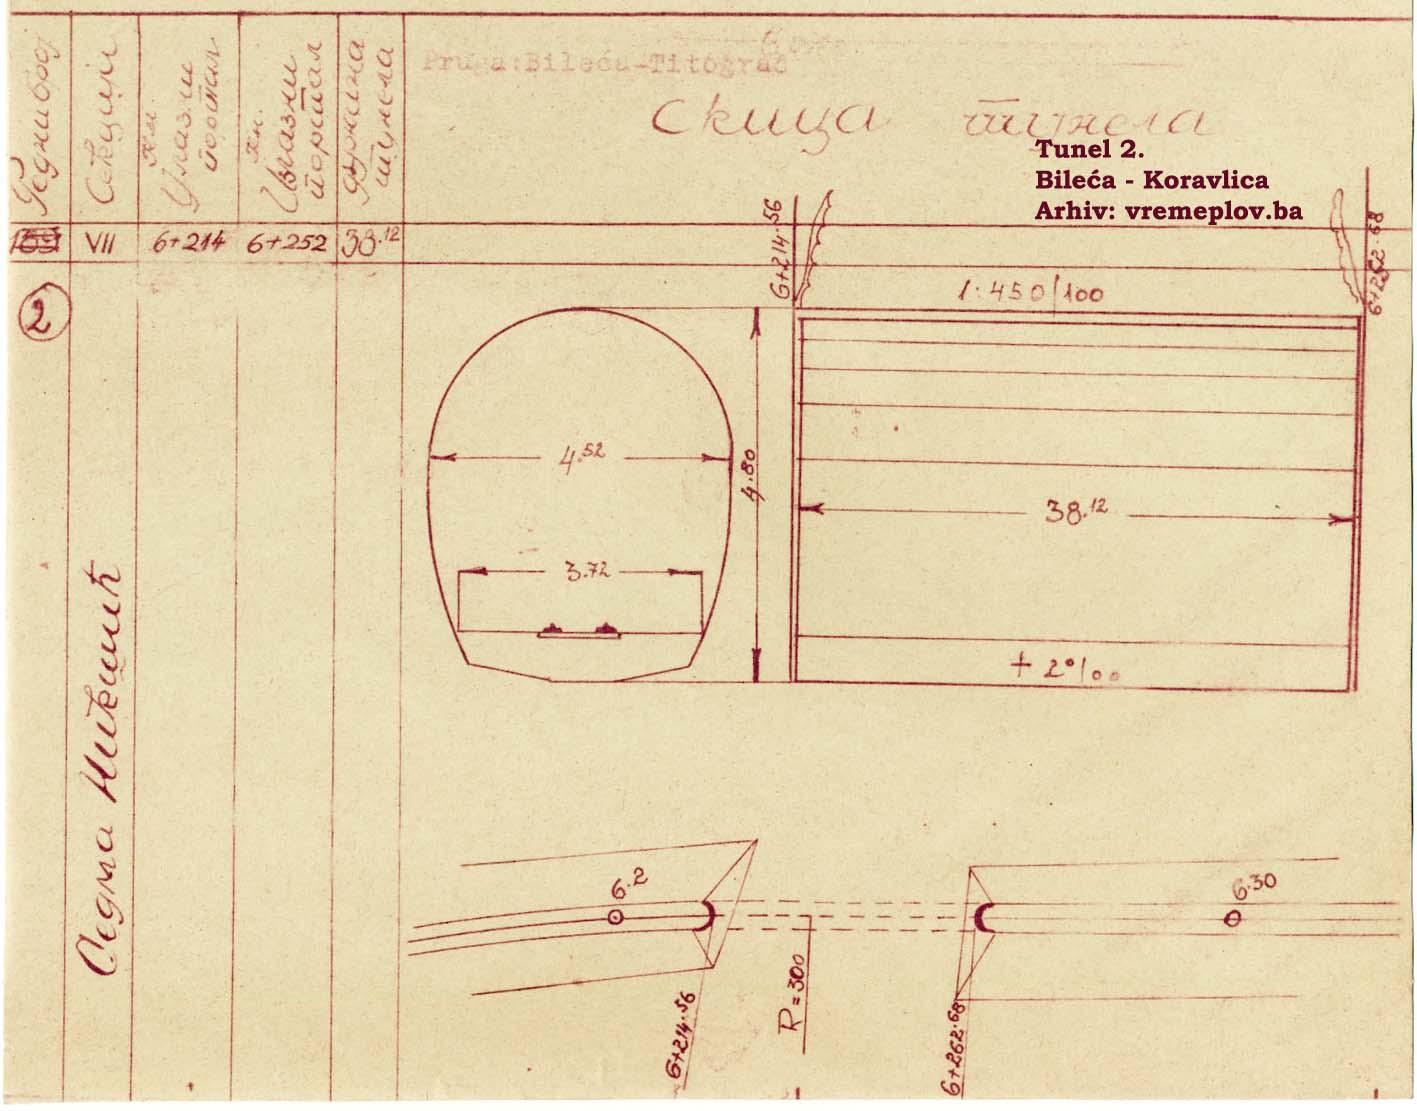 Редни број
Секција
Км.
Улазни
портал
Км.
Излазни
портал
Дужина
тунела
Pruga: Bileća-Titograd
Скица тунела
Tunel 2.
Bileća - Koravlica
Arhiv: vremeplov.ba
VII
6+214
6+252
38.12
2
6+214.56
6+252.68
1:450/100
4.52
4.80
38.12
3.72
+ 2‰
Седма Никшић
6.2
6.30
6+214.56
R=300
6+262.68